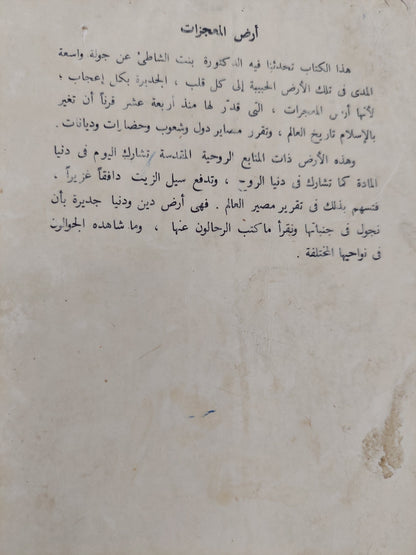 أرض المعجزات
هذا الكتاب تحدثنا فيه الدكتورة بنت الشاطئ عن جولة واسعة
المدى فى تلك الأرض الحبيبة إلى كل قلب ، الجديرة بكل إعجاب ؛
لأنها أرض المعجزات ، التى قدّر لها منذ أربعة عشر قرناً أن تغير
بالإسلام تاريخ العالم ، وتقرر مصاير دول وشعوب وحضارات وديانات .
وهذه الأرض ذات المنابع الروحية المقدسة تشارك اليوم فى دنيا
المادة كما تشارك فى دنيا الروح ، وتدفع سيل الزيت دافقاً غزيراً ،
فتسهم بذلك فى تقرير مصير العالم . فهى أرض دين ودنيا جديرة بأن
نجول فى جنباتها ونقرأ ما كتب الرحالون عنها ، وما شاهده الجوالون
فى نواحيها المختلفة .